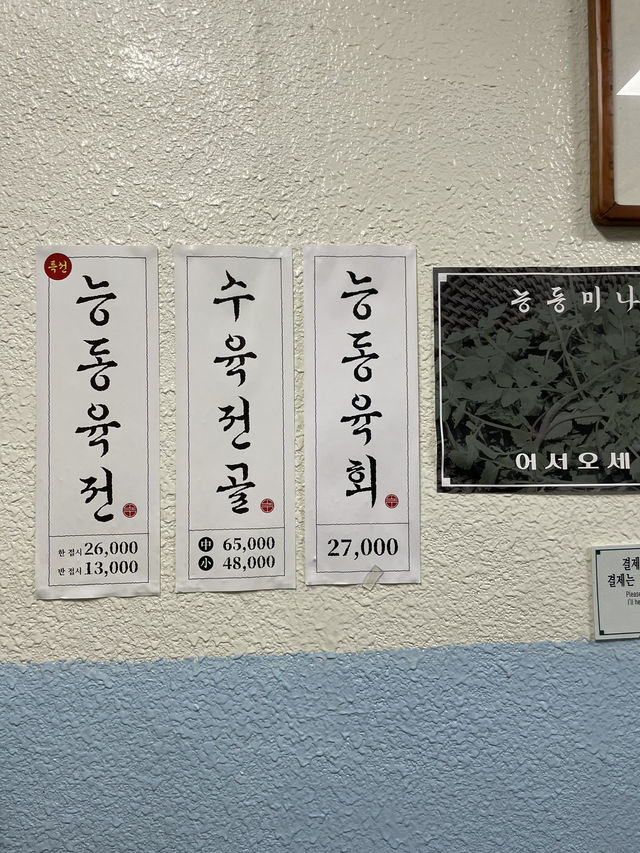 특선
능동육전
한 접시 26,000
반 접시 13,000
수육전골
中 65,000
小 48,000
능동육회
27,000
능동미나
어서오세
결제
결제는
Please
I'll he